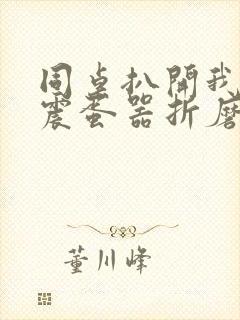 同桌扒開我
震蛋器折磨
董川峰